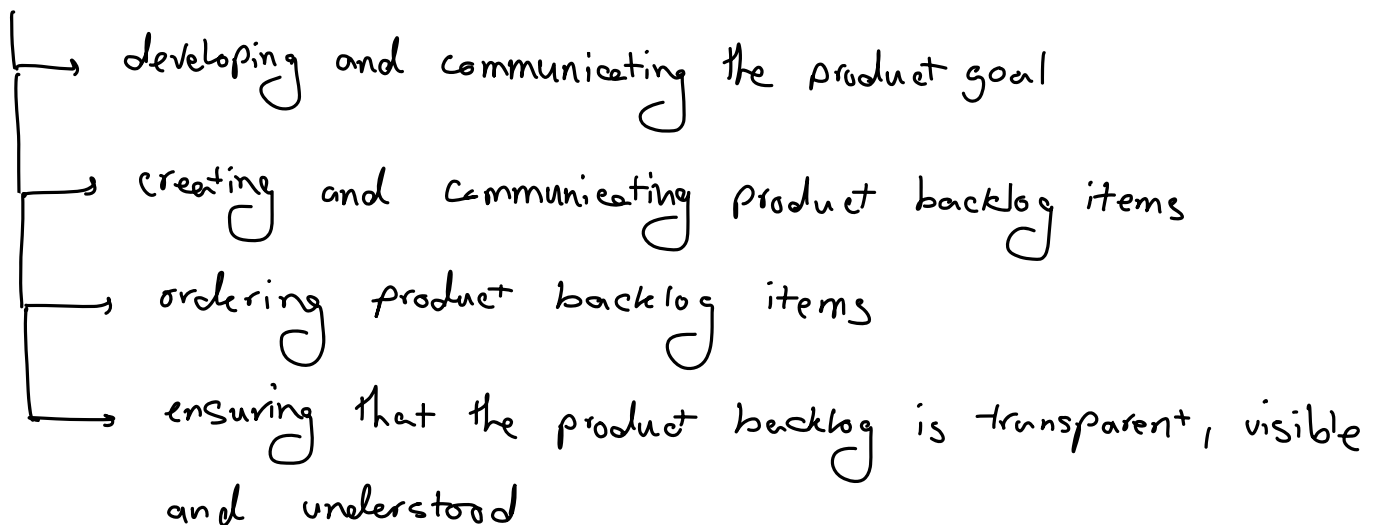 developing and communicating the product goal
creating and communicating product backlog items
ordering product backlog items
ensuring that the product backlog is transparent, visible
and understood